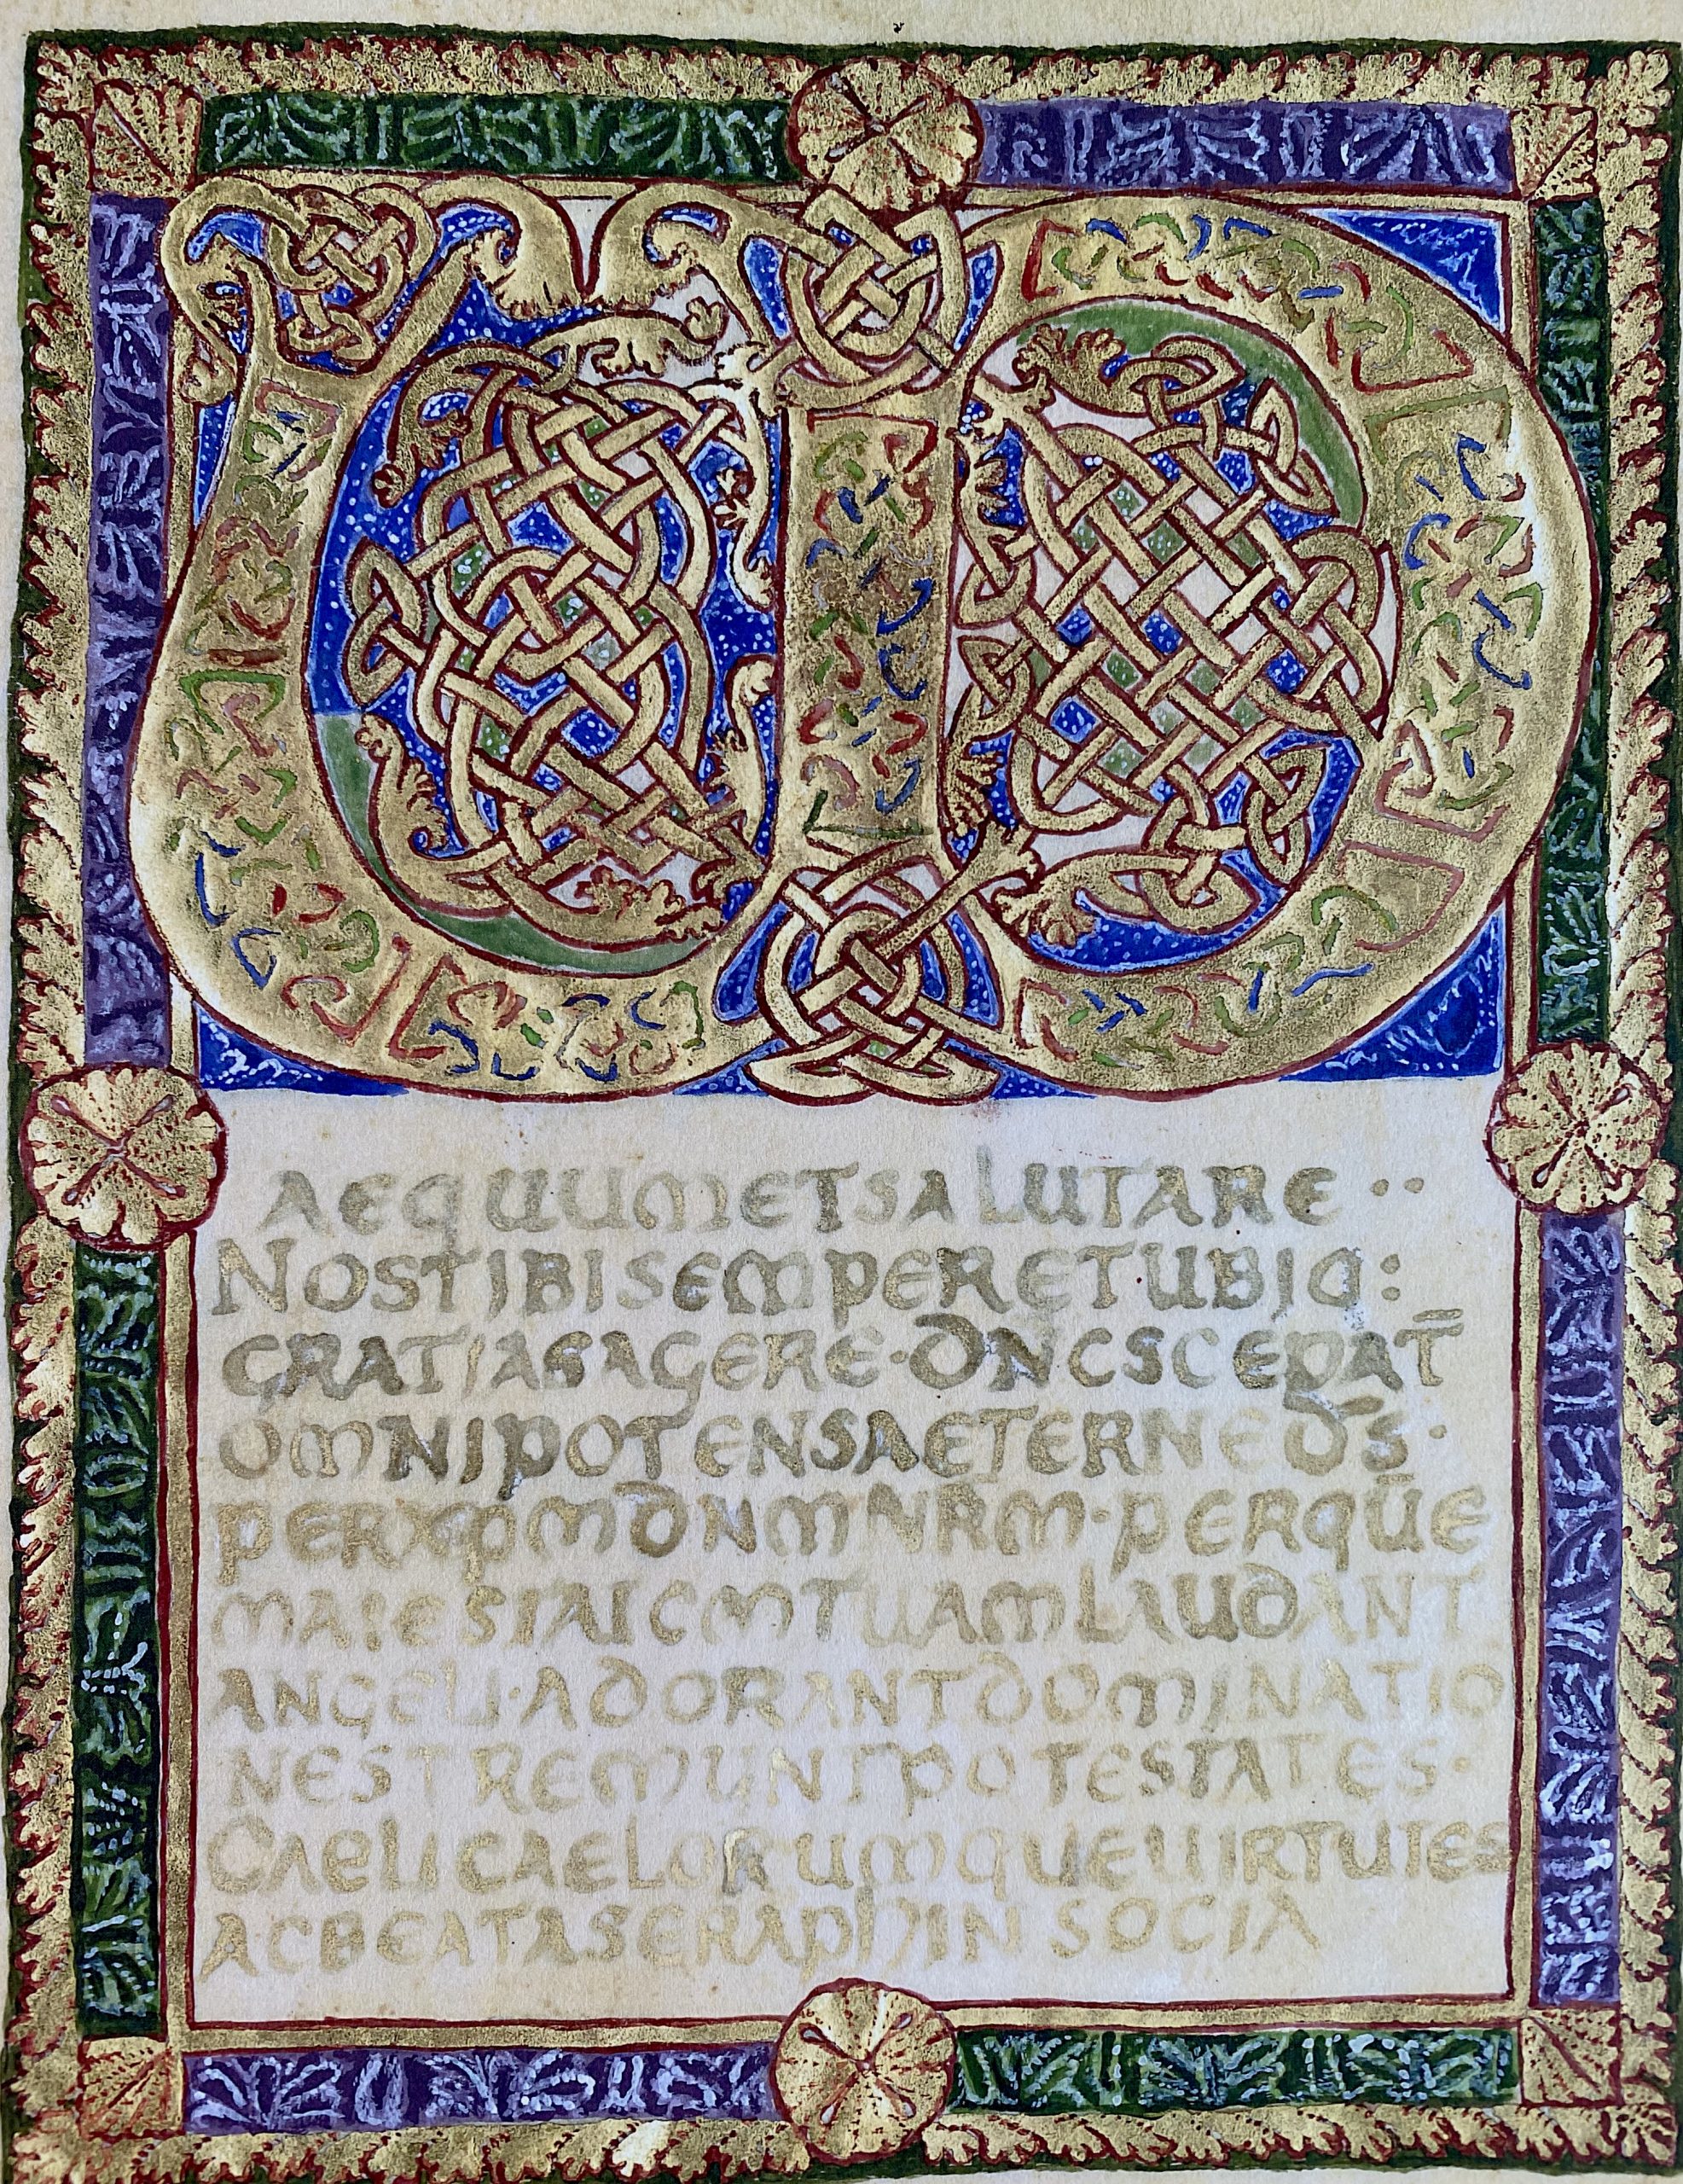 AEQUUMETSALUTARE··
NOSTIBISEMPERETUBIQ:
GRATIASAGERE·DN̄CSCEPAT̄
OMNIPOTENSAETERNED̄S·
PERXPMDNMNRM·PERQUĒ
MAIESTATEMTUAMLAUDANT
ANGELI·ADORANTDOMINATIO
NESTREMUNTPOTESTATES·
CAELICAELORUMQUEUIRTUTES
ACBEATASERAPHIN SOCIA